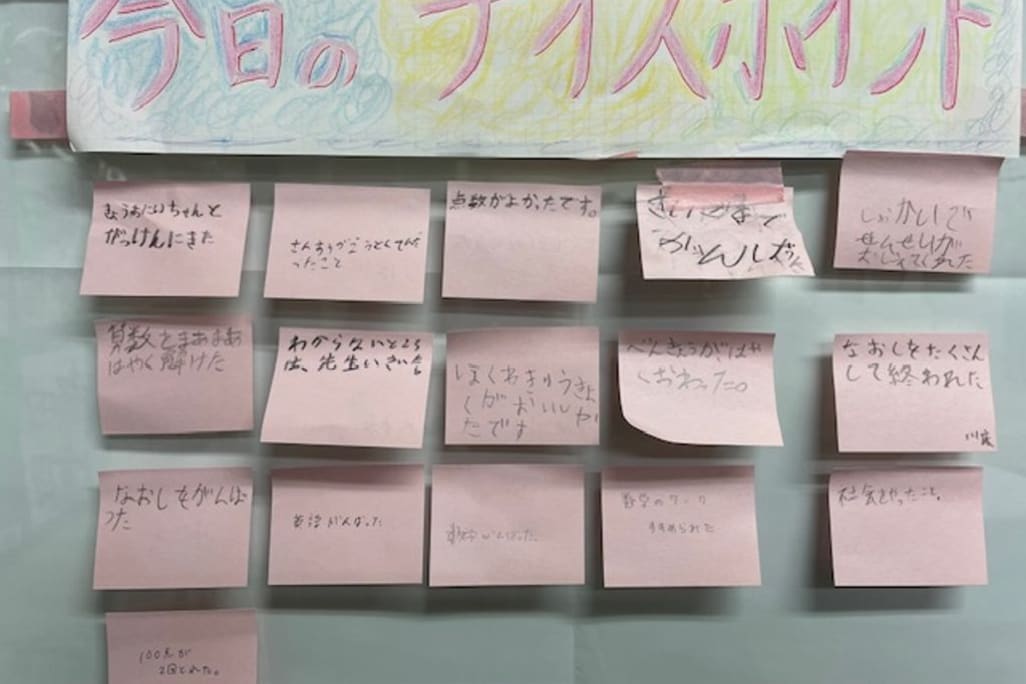 今日のナイスポイント
きょうおにいちゃんと
がっけんにきた
さんすうがごうとくてんだ
ったこと
点数がよかったです。
さいごまで
がんばっ
しょかいで
せんせいが
おしえてくれた
算数をまあまあ
はやく解けた
わからないところ
は、先生にきい
ぼくわきゅうしょ
くがおいしか
たです
べんきょうがはや
くおわった。
なおしをたくさん
して終われた
なおしをがんば
った
がんばった
がんばった
数学のワーク
すすめられた
社会をやったこと。
100点が
2回とれた。